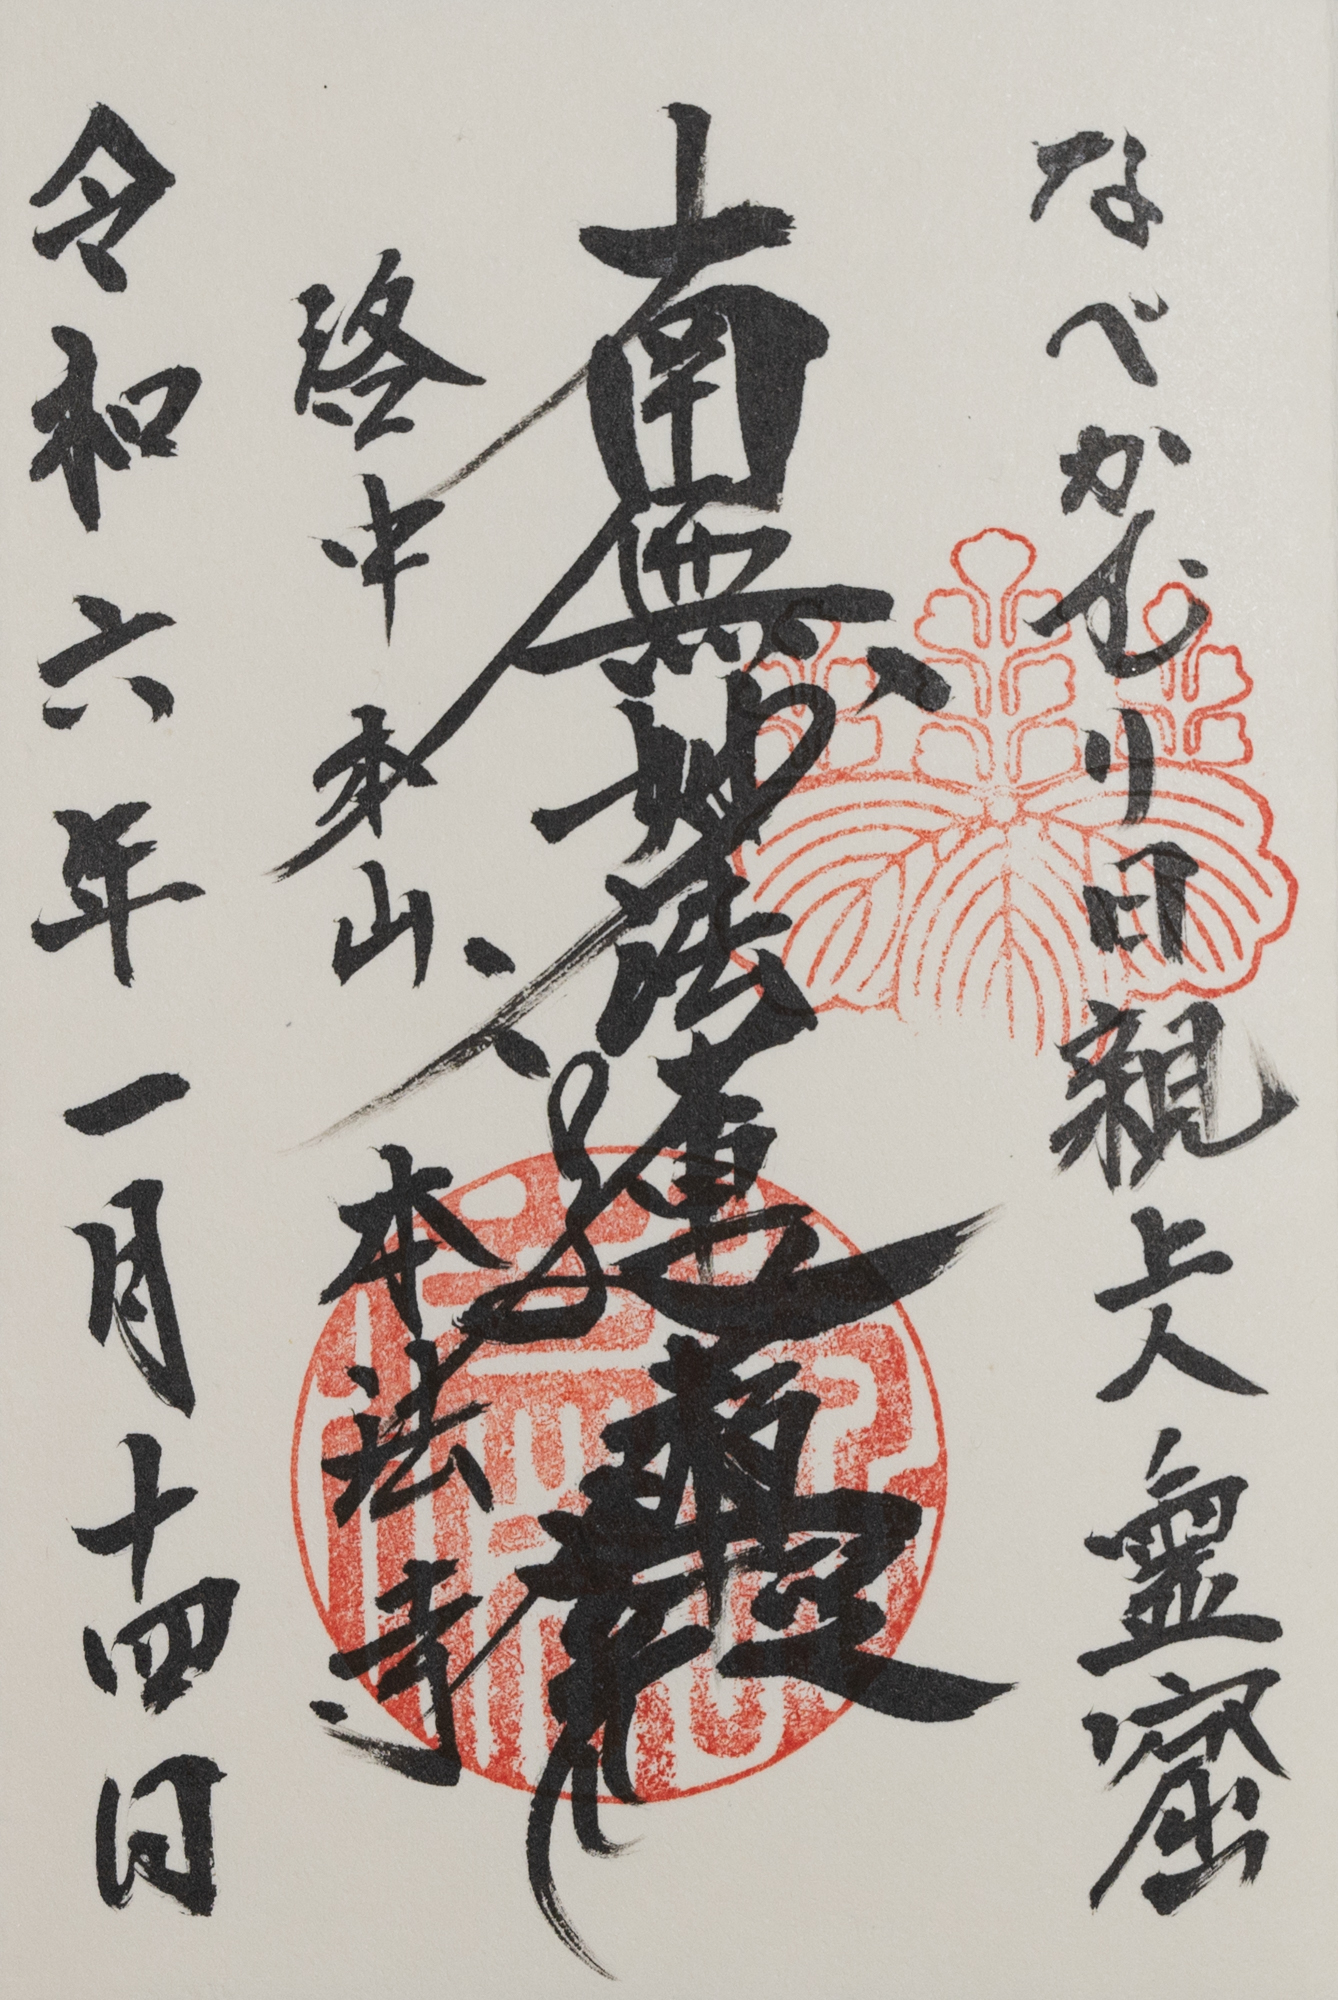 なべかむり日親上人霊窟
南無妙法蓮華経
洛中本山 本法寺
令和六年一月十四日